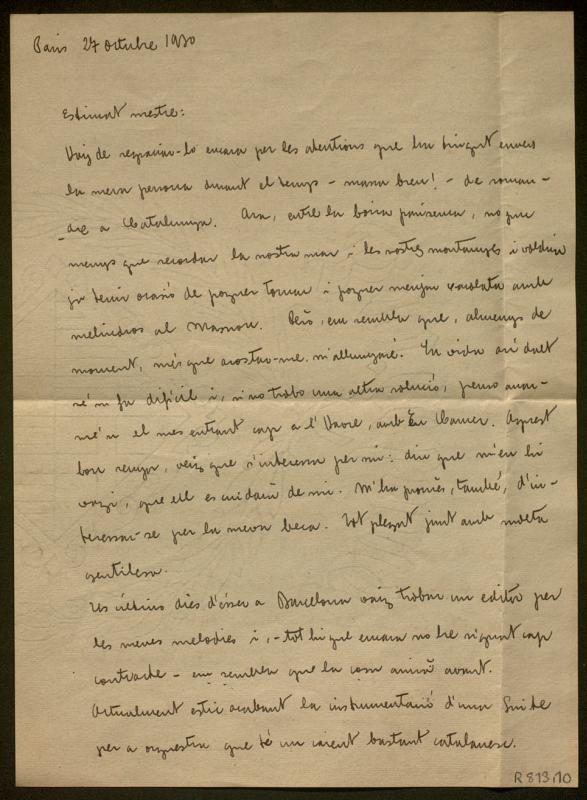 Paris 27 octubre 1930
Estimat mestre:
Haig de regraciar-lo encara per les atentions que ha tingut envers
la meva persona durant el temps - massa breu! - de roman-
dre a Catalunya. Ara, entre la boira parisenca, no puc
menys que recordar la nostra mar i les nostres montanyes i voldria
ja tenir ocasió de poguer tornar i poguer menjar xocolata amb
melindros al Masnou. Però, em sembla que, almenys de
moment, més que acostar-me, m'allunyaré. La vida ací dalt
se'm fa difícil i, si no trobo una altra solució, penso anar-
me'n el mes entrant cap a l'Havre, amb En Claver. Aquest
bon senyor, veig que s'interessa per mi: diu que me'n hi
vagi, que ell es cuidarà de mi. M'ha promès, també, d'in-
teressar-se per la meva beca. Tot plegat junt amb molta
gentilesa.
Els últims dies d'ésser a Barcelona vaig trobar un editor per
les meves melodies i, - tot hi que encara no he signat cap
contracte - em sembla que la cosa anirà avant.
Actualment estic acabant la instrumentació d'una Suite
per a orquestra que té un caient bastant catalanesc.
R 813.10